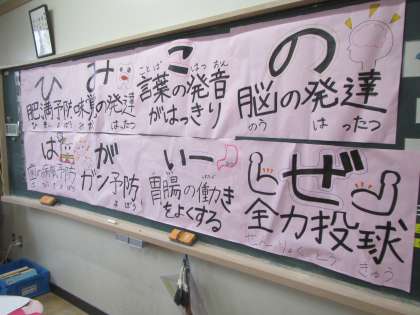 ひ
肥満予防
ひまんよぼう
み
味覚の発達
はったつ
こ
ことば はつおん
言葉の発音
がはっきり
の
脳の発達
のう はったつ
は
歯の病気予防
が
ガン予防
よぼう
いー
胃腸の働き
をよくする
ぜ
全力投球
ぜんりょくとうきゅう